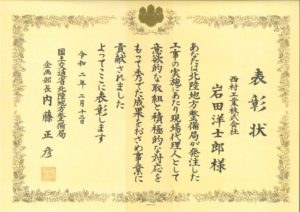 表彰状
西村工業株式会社
岩田洋士郎様
あなたは北陸地方整備局が発注した
工事の実施にあたり現場代理人として
意欲的な取組と積極的な対応を
もって秀でた成果をおさめ事業に
貢献されました
よってここに表彰します
令和二年二月十三日
国土交通省北陸地方整備局
企画部長 内藤正彦